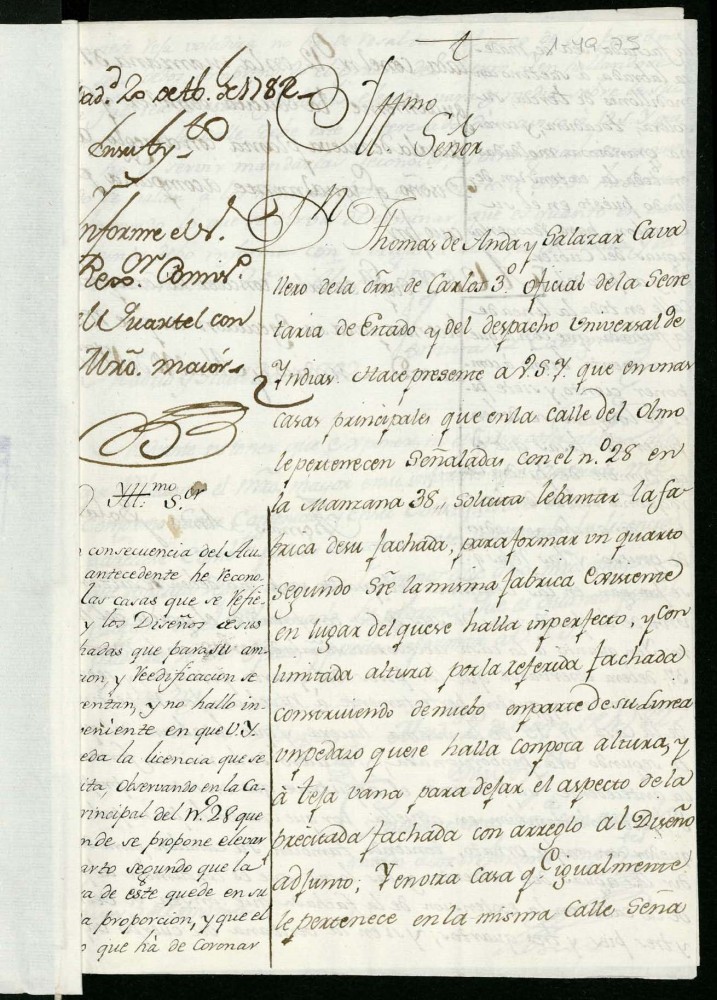 1-49-75
Mad.d 20 de Ab. de 1782
Ill.mo
Señor
Informe el S.r
Rex.or Comis.o
del Quartel con
el Mro. maior
Ill.mo S.or
consecuencia del Au
antecedente he recono
las casas que se refie
y los Diseños de sus
hadas que para su am
cion y Reedificacion se
sentan, y no hallo in
veniente en que V.Y.
eda la licencia que se
ita, observando en la Ca
rincipal del N.o 28 que
nde se propone elevar
arto segundo que la
ra de este quede en su
a proporcion, y que el
o que hà de coronar
Dn Thomas de Anda y Salazar Cava
llero dela Orñ de Carlos 3.o oficial de la Secre
taria de Estado y del despacho Universal de
Yndias. Hace presente a V.S.Y. que en unas
casas principales que en la calle del Olmo
le pertenecen señaladas con el n.o 28 en
la Manzana 38,, solicita lebantar la fa
brica de su fachada, para formar un quarto
segundo Sre la misma fabrica existente
en lugar del que se halla inperfecto, y con
limitada altura por la referida fachada
construiendo de nuebo en parte de su Linea
un pedazo que se halla con poca altura, y
à teja vana para dejar el aspecto de la
precitada fachada con arreglo al Diseño
adjunto; Y en otra Casa q.e igualmente
le pertenece en la misma Calle Seña